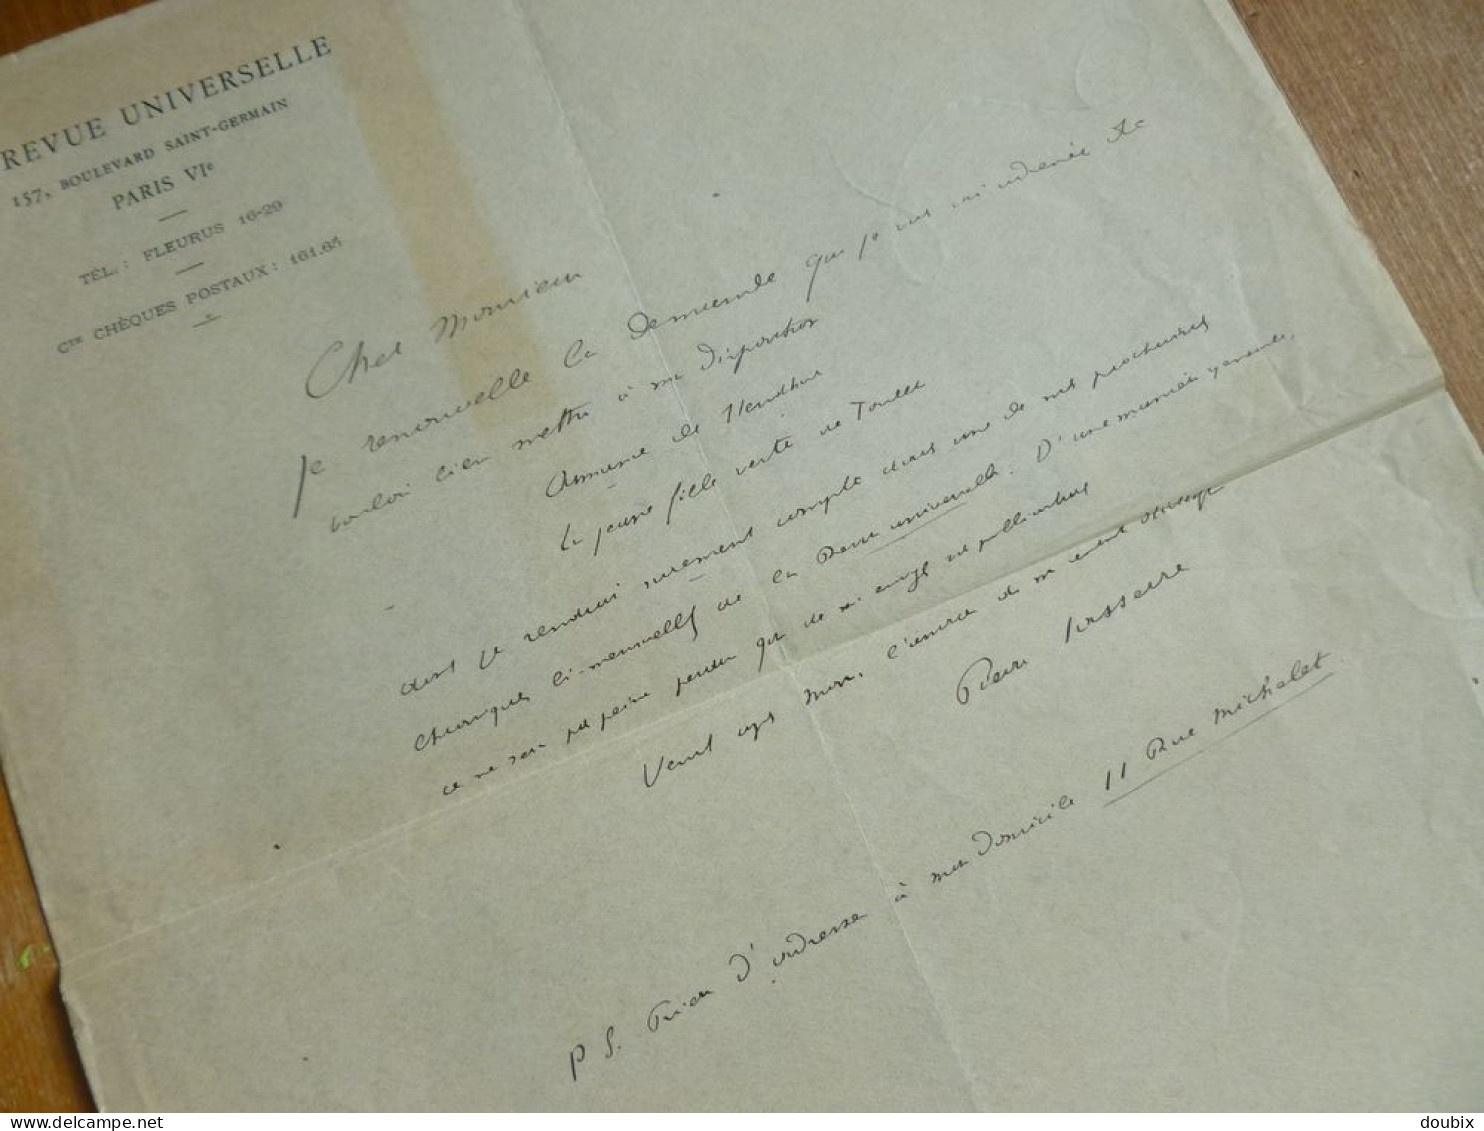 REVUE UNIVERSELLE
157, BOULEVARD SAINT-GERMAIN
PARIS VIe
TÉL. : FLEURUS 16-29
Cte CHÈQUES POSTAUX : 161.65
Cher Monsieur
Je renouvelle la demande que je vous ai adressée de
vouloir bien mettre à ma disposition
de
La jeune fille verte de Toulet
dont je rendrai surement compte dans une de mes prochaines
chroniques bi-mensuelles de la Revue universelle. D'une manière générale,
ce ne sera pas peine perdue que de m'envoyer vos publications
Veuillez agréer Mons. l'assurance de
Pierre Lasserre
P S. Prière d'adresse à mon domicile 11 Rue Michelet
doubix